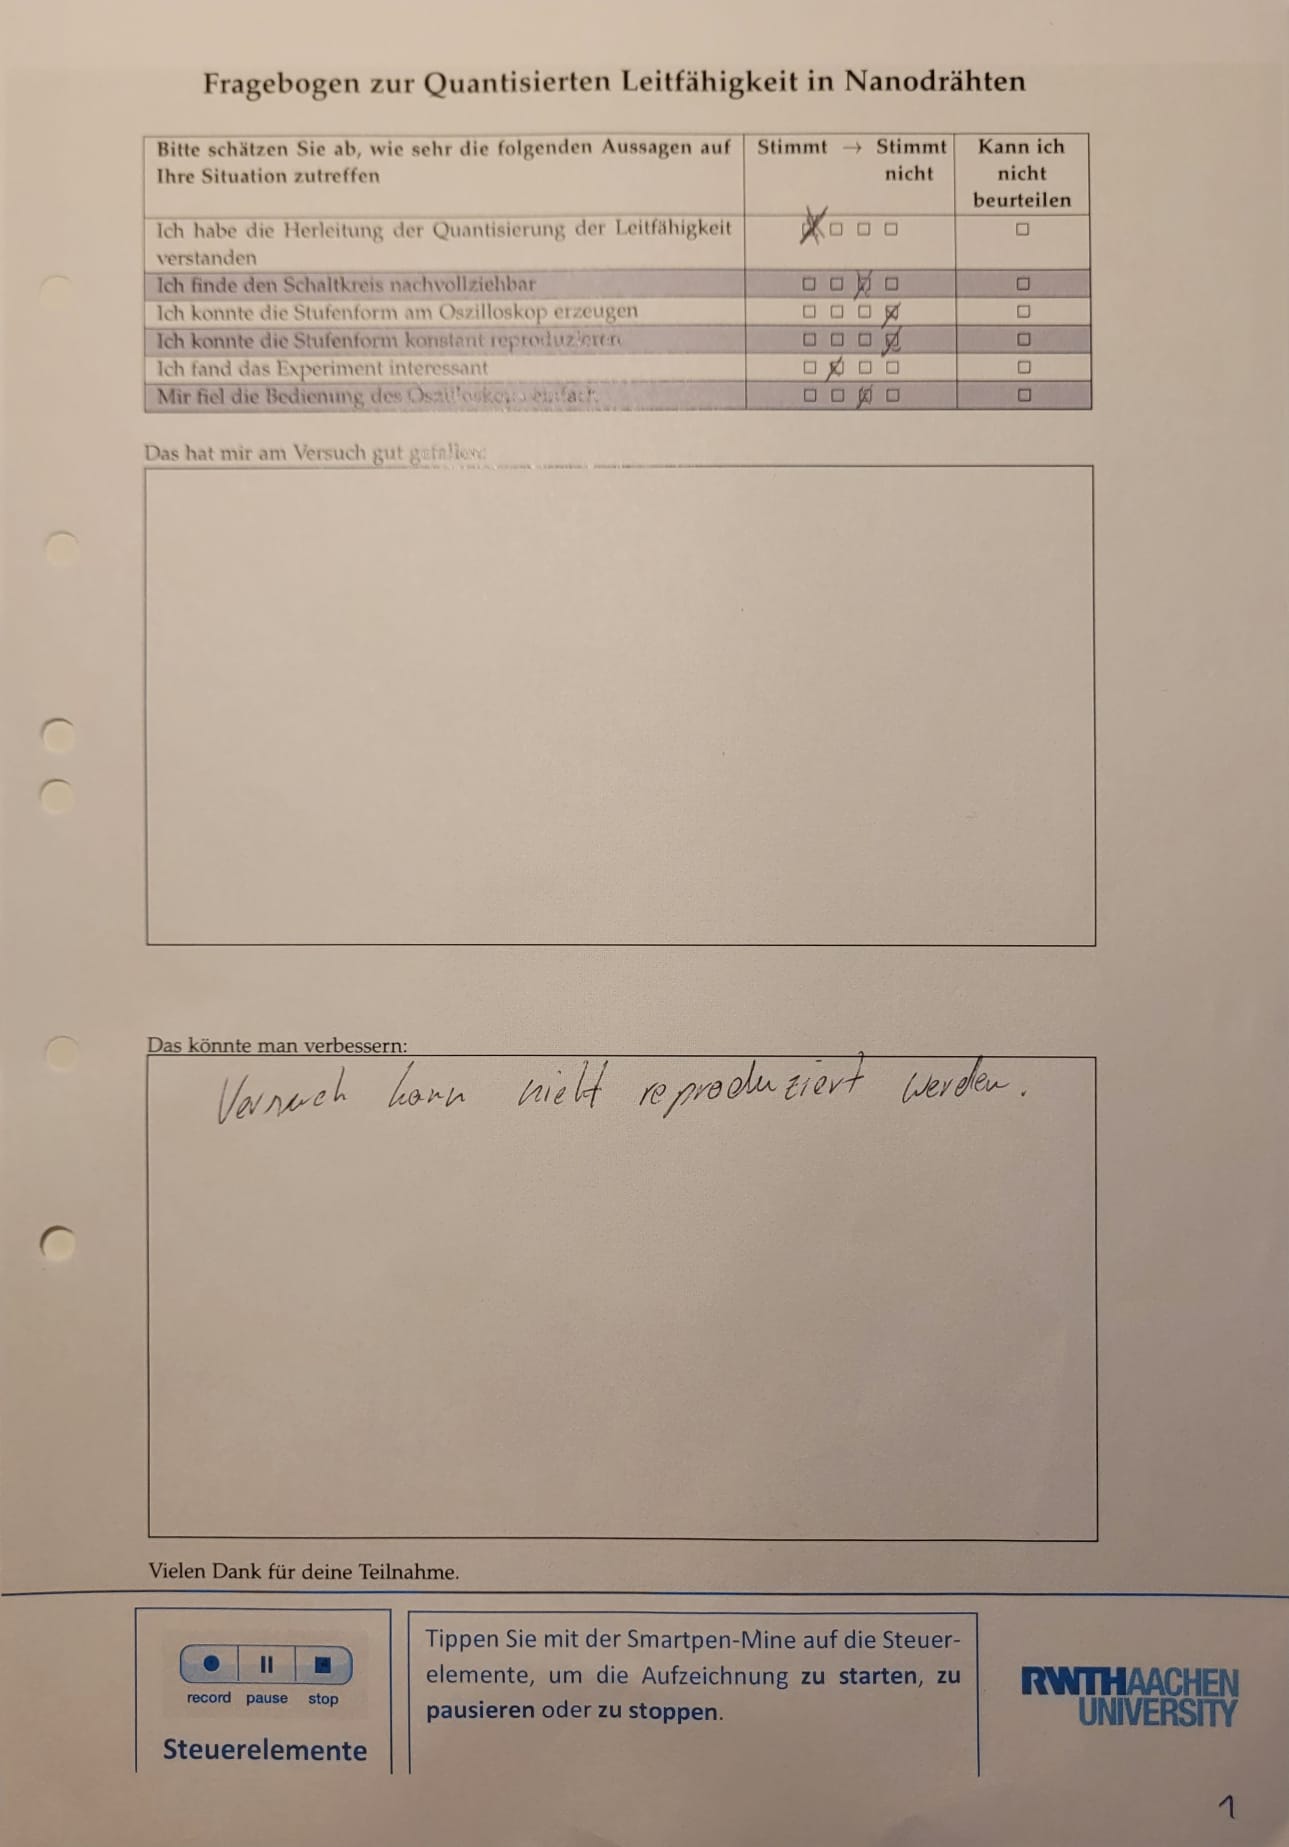 Fragebogen zur Quantisierten Leitfähigkeit in Nanodrähten
Bitte schätzen Sie ab, wie sehr die folgenden Aussagen auf Ihre Situation zutreffen
Stimmt → Stimmt nicht
Kann ich nicht beurteilen
Ich habe die Herleitung der Quantisierung der Leitfähigkeit verstanden
Ich finde den Schaltkreis nachvollziehbar
Ich konnte die Stufenform am Oszilloskop erzeugen
Ich konnte die Stufenform konstant reproduzieren
Ich fand das Experiment interessant
Mir fiel die Bedienung des Oszilloskops einfach
Das hat mir am Versuch gut gefallen:
Das könnte man verbessern:
Versuch kann nicht reproduziert werden.
Vielen Dank für deine Teilnahme.
record pause stop
Steuerelemente
Tippen Sie mit der Smartpen-Mine auf die Steuer-
elemente, um die Aufzeichnung zu starten, zu
pausieren oder zu stoppen.
RWTHAACHEN
UNIVERSITY
1